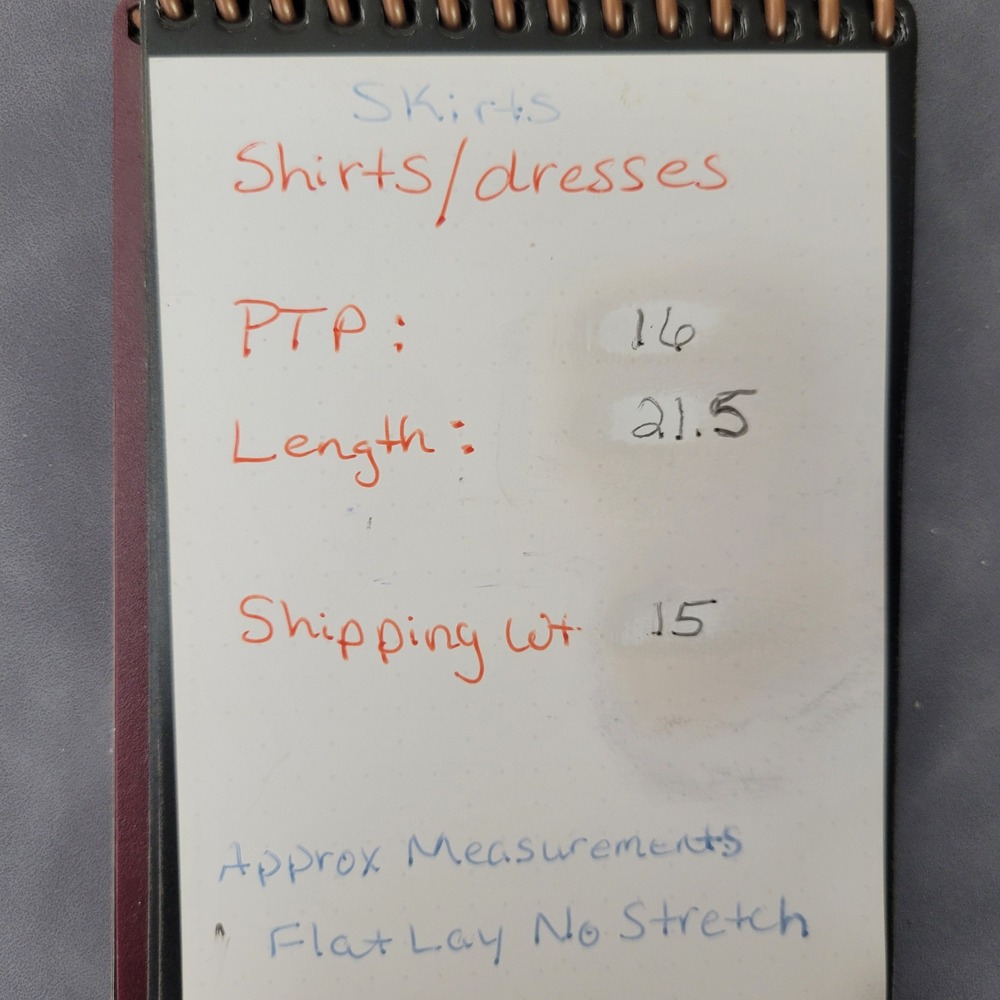 Skirts
Shirts/dresses
PTP: 16
Length: 21.5
Shipping Wt 15
Approx Measurements
Flat Lay No Stretch